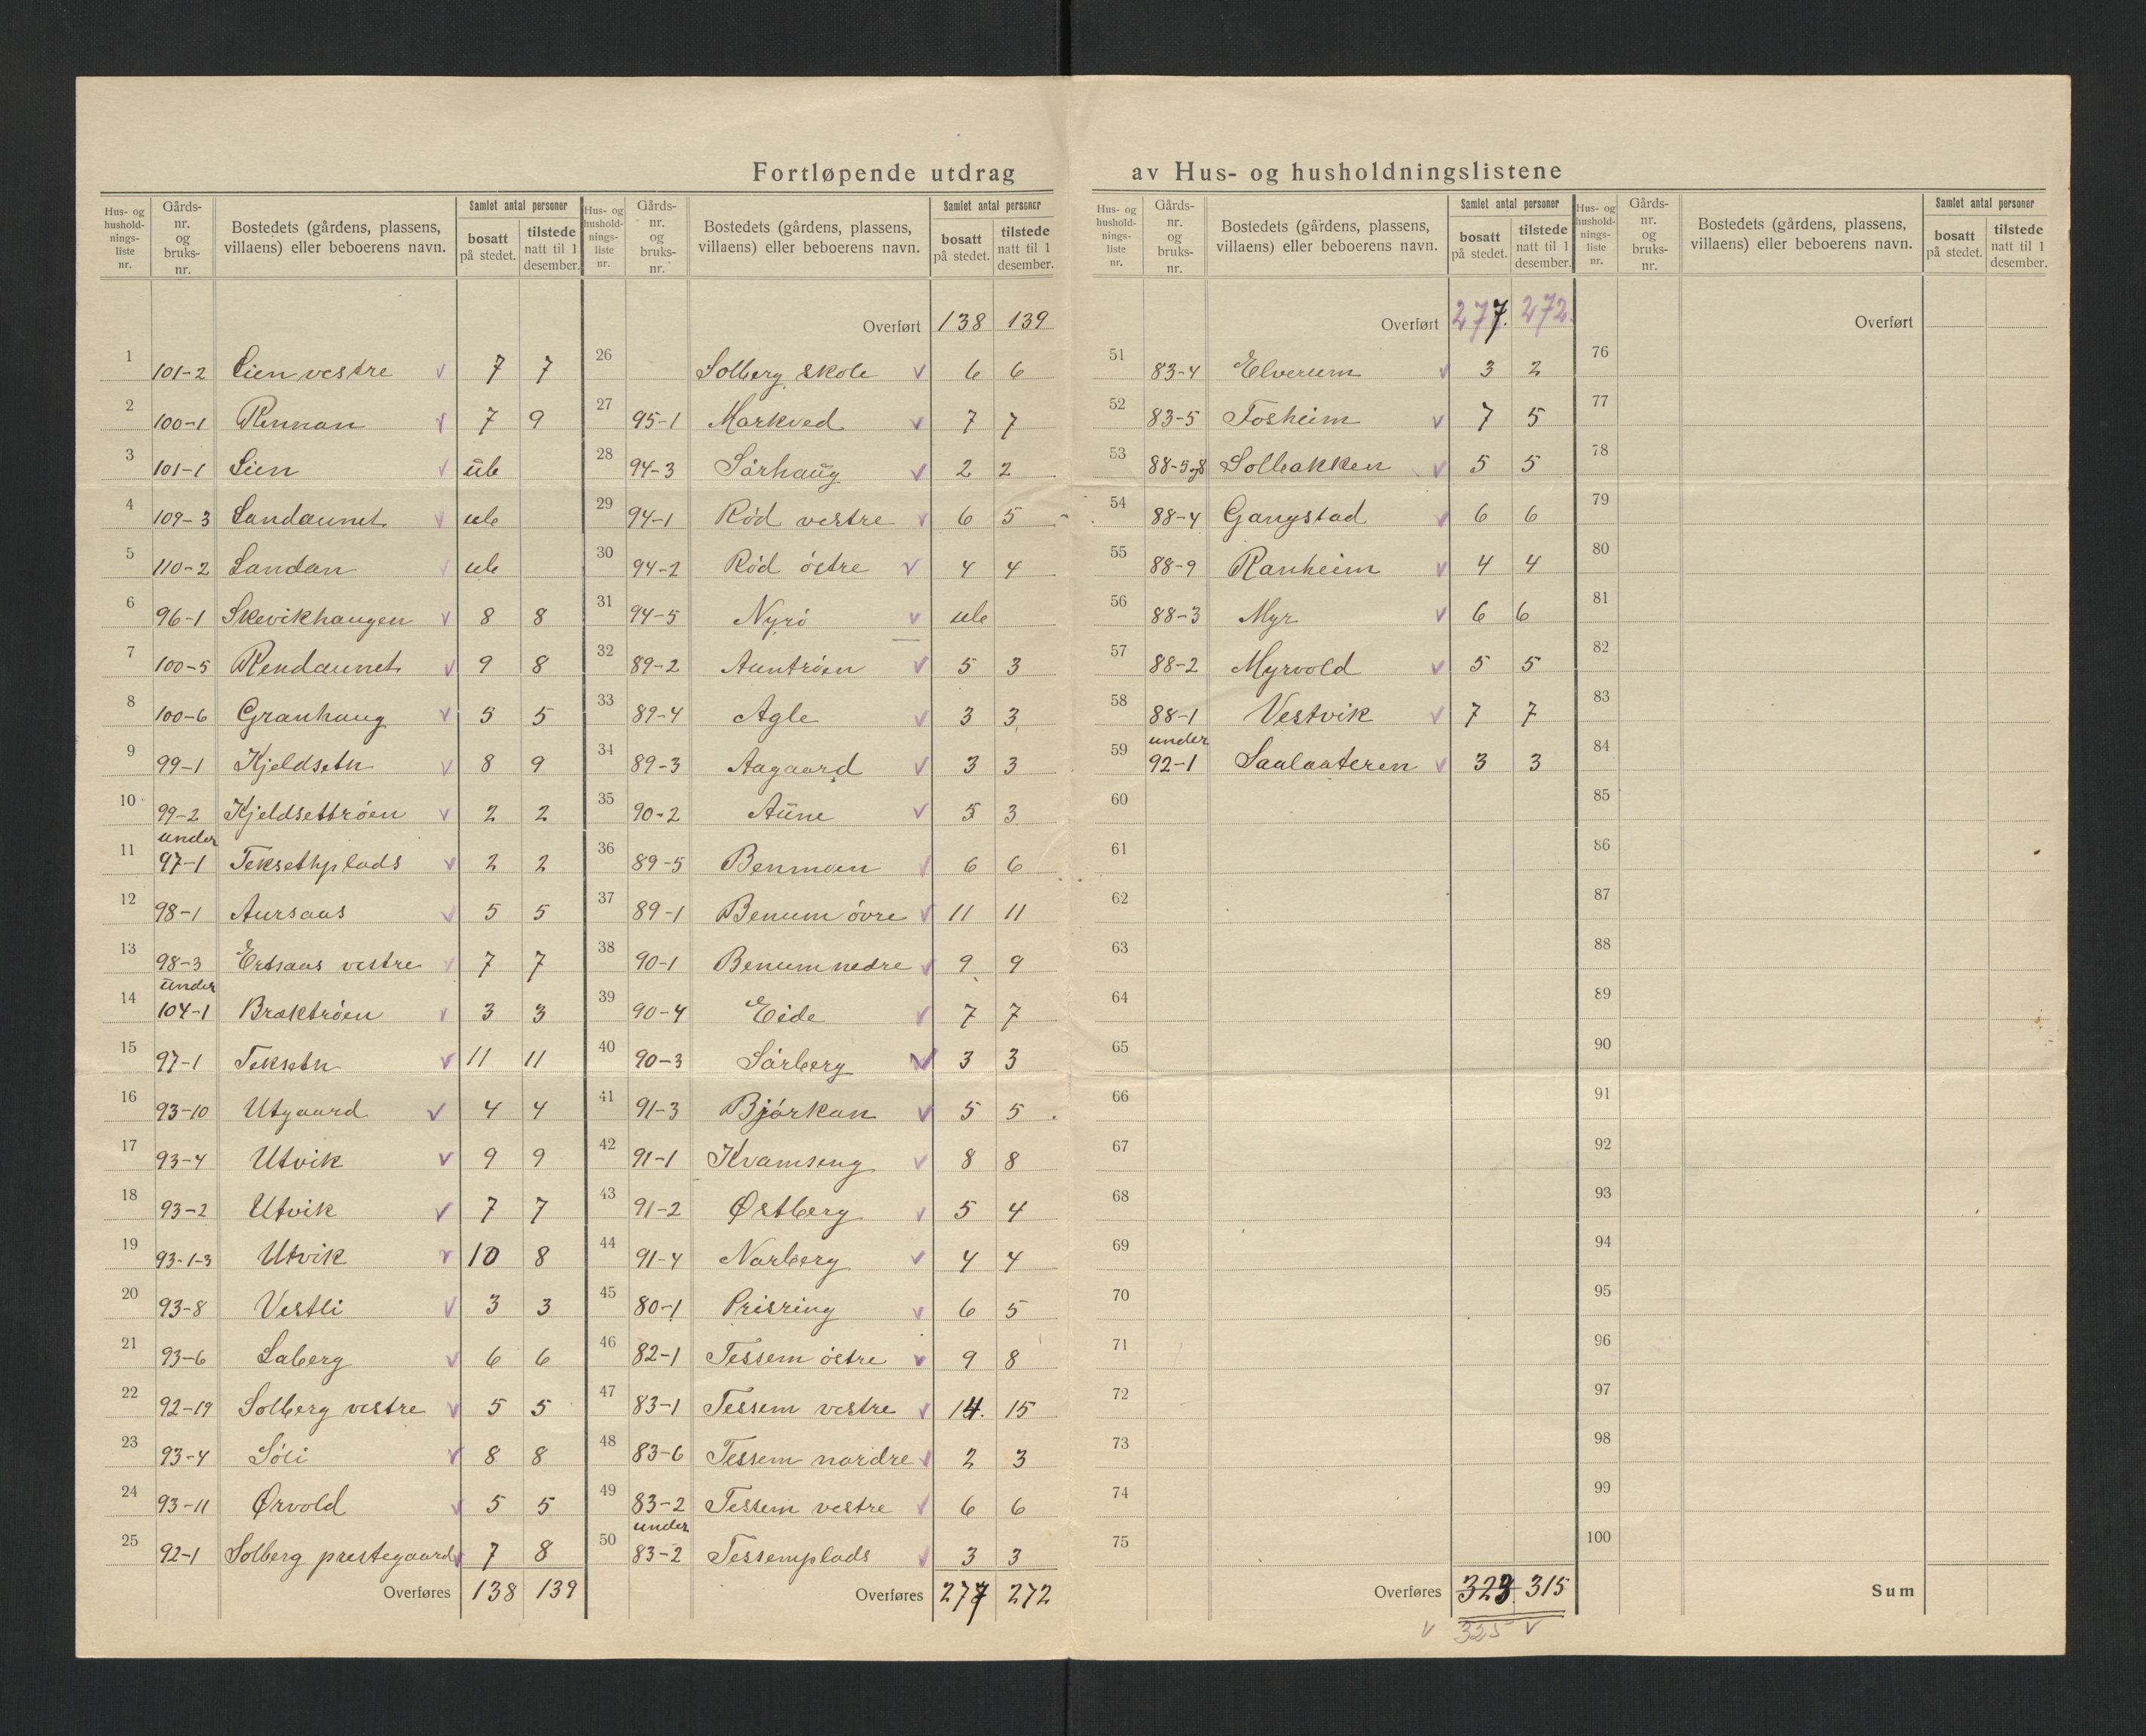 Fortløpende utdrag av Hus- og husholdningslistene
Hus- og hushold- nings- liste nr. | Gårds- nr. og bruks- nr. | Bostedets (gårdens, plassens, villaens) eller beboerens navn. | Samlet antal personer | bosatt på stedet. | tilstede natt til 1 desember.
1 101-2 Lien vestre v 7 7
2 100-1 Rennan v 7 9
3 101-1 Lien v ub
4 109-3 Landaunet v ub
5 110-2 Landan v ub
6 96-1 Skevikhaugen v 8 8
7 100-5 Rendaunet v 9 8
8 100-6 Granhaug v 5 5
9 99-1 Kjeldsetn v 8 9
10 99-2 Kjeldsettrøen v 2 2
11 under 97-1 Teksethplads v 2 2
12 98-1 Aursaas v 5 5
13 98-3 Ertsaas vestre v 7 7
14 under 104-1 Braktrøen v 3 3
15 97-1 Teksetn v 11 11
16 93-10 Utgaard v 4 4
17 93-4 Utvik v 9 9
18 93-2 Utvik v 7 7
19 93-1-3 Utvik v 10 8
20 93-8 Vestli v 3 3
21 93-6 Laberg v 6 6
22 92-19 Solberg vestre v 5 5
23 93-4 Sóli v 8 8
24 93-11 Ørvold v 5 5
25 92-1 Solberg prestegaard v 7 8
Overføres 138 139
Hus- og hushold- nings- liste nr. | Gårds- nr. og bruks- nr. | Bostedets (gårdens, plassens, villaens) eller beboerens navn. | Samlet antal personer | bosatt på stedet. | tilstede natt til 1 desember.
Overført 138 139
26 Solberg skole v 6 6
27 95-1 Markved v 7 7
28 94-3 Sórhaug v 2 2
29 94-1 Ród vestre v 6 5
30 94-2 Ród óstre v 4 4
31 94-5 Nyró v ub
32 89-2 Auntróen v 5 3
33 89-4 Agle v 3 3
34 89-3 Aagaard v 3 3
35 90-2 Aune v 5 3
36 89-5 Benmoen v 6 6
37 89-1 Benum óvre v 11 11
38 90-1 Benum nedre v 9 9
39 90-4 Eide v 7 7
40 90-3 Sórberg v 3 3
41 91-3 Bjórkan v 5 5
42 91-1 Kvamseng v 8 8
43 91-2 Østberg v 5 4
44 91-4 Norberg v 4 4
45 80-1 Prisring v 6 5
46 82-1 Tessem óstre v 9 8
47 83-1 Tessem vestre v 14. 15
48 83-6 Tessem nordre v 2 3
49 83-2 Tessem vestre v 6 6
50 under 83-2 Tessemplads v 3 3
Overføres 277 272
Hus- og hushold- nings- liste nr. | Gårds- nr. og bruks- nr. | Bostedets (gårdens, plassens, villaens) eller beboerens navn. | Samlet antal personer | bosatt på stedet. | tilstede natt til 1 desember.
Overført 277. 272.
51 83-4 Elverum v 3 2
52 83-5 Fosheim v 7 5
53 88-5og8 Solbakken v 5 5
54 88-4 Gangstad v 6 6
55 88-9 Ranheim v 4 4
56 88-3 Myr v 6 6
57 88-2 Myrvold v 5 5
58 88-1 Vestvik v 7 7
59 under 92-1 Saalaateren v 3 3
60
61
62
63
64
65
66
67
68
69
70
71
72
73
74
75
Overføres 323 315
v 325 v
Hus- og hushold- nings- liste nr. | Gårds- nr. og bruks- nr. | Bostedets (gårdens, plassens, villaens) eller beboerens navn. | Samlet antal personer | bosatt på stedet. | tilstede natt til 1 desember.
Overført
76
77
78
79
80
81
82
83
84
85
86
87
88
89
90
91
92
93
94
95
96
97
98
99
100
Sum